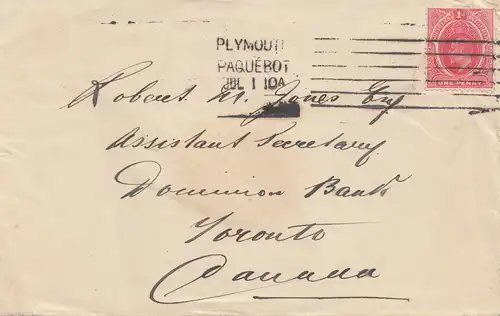 PLYMOUTH
PAQUEBOT
JUL 1 10A
1d
ONE PENNY
Robert M. Jones Esq
Assistant Secretary
Dominion Bank
Toronto
Canada